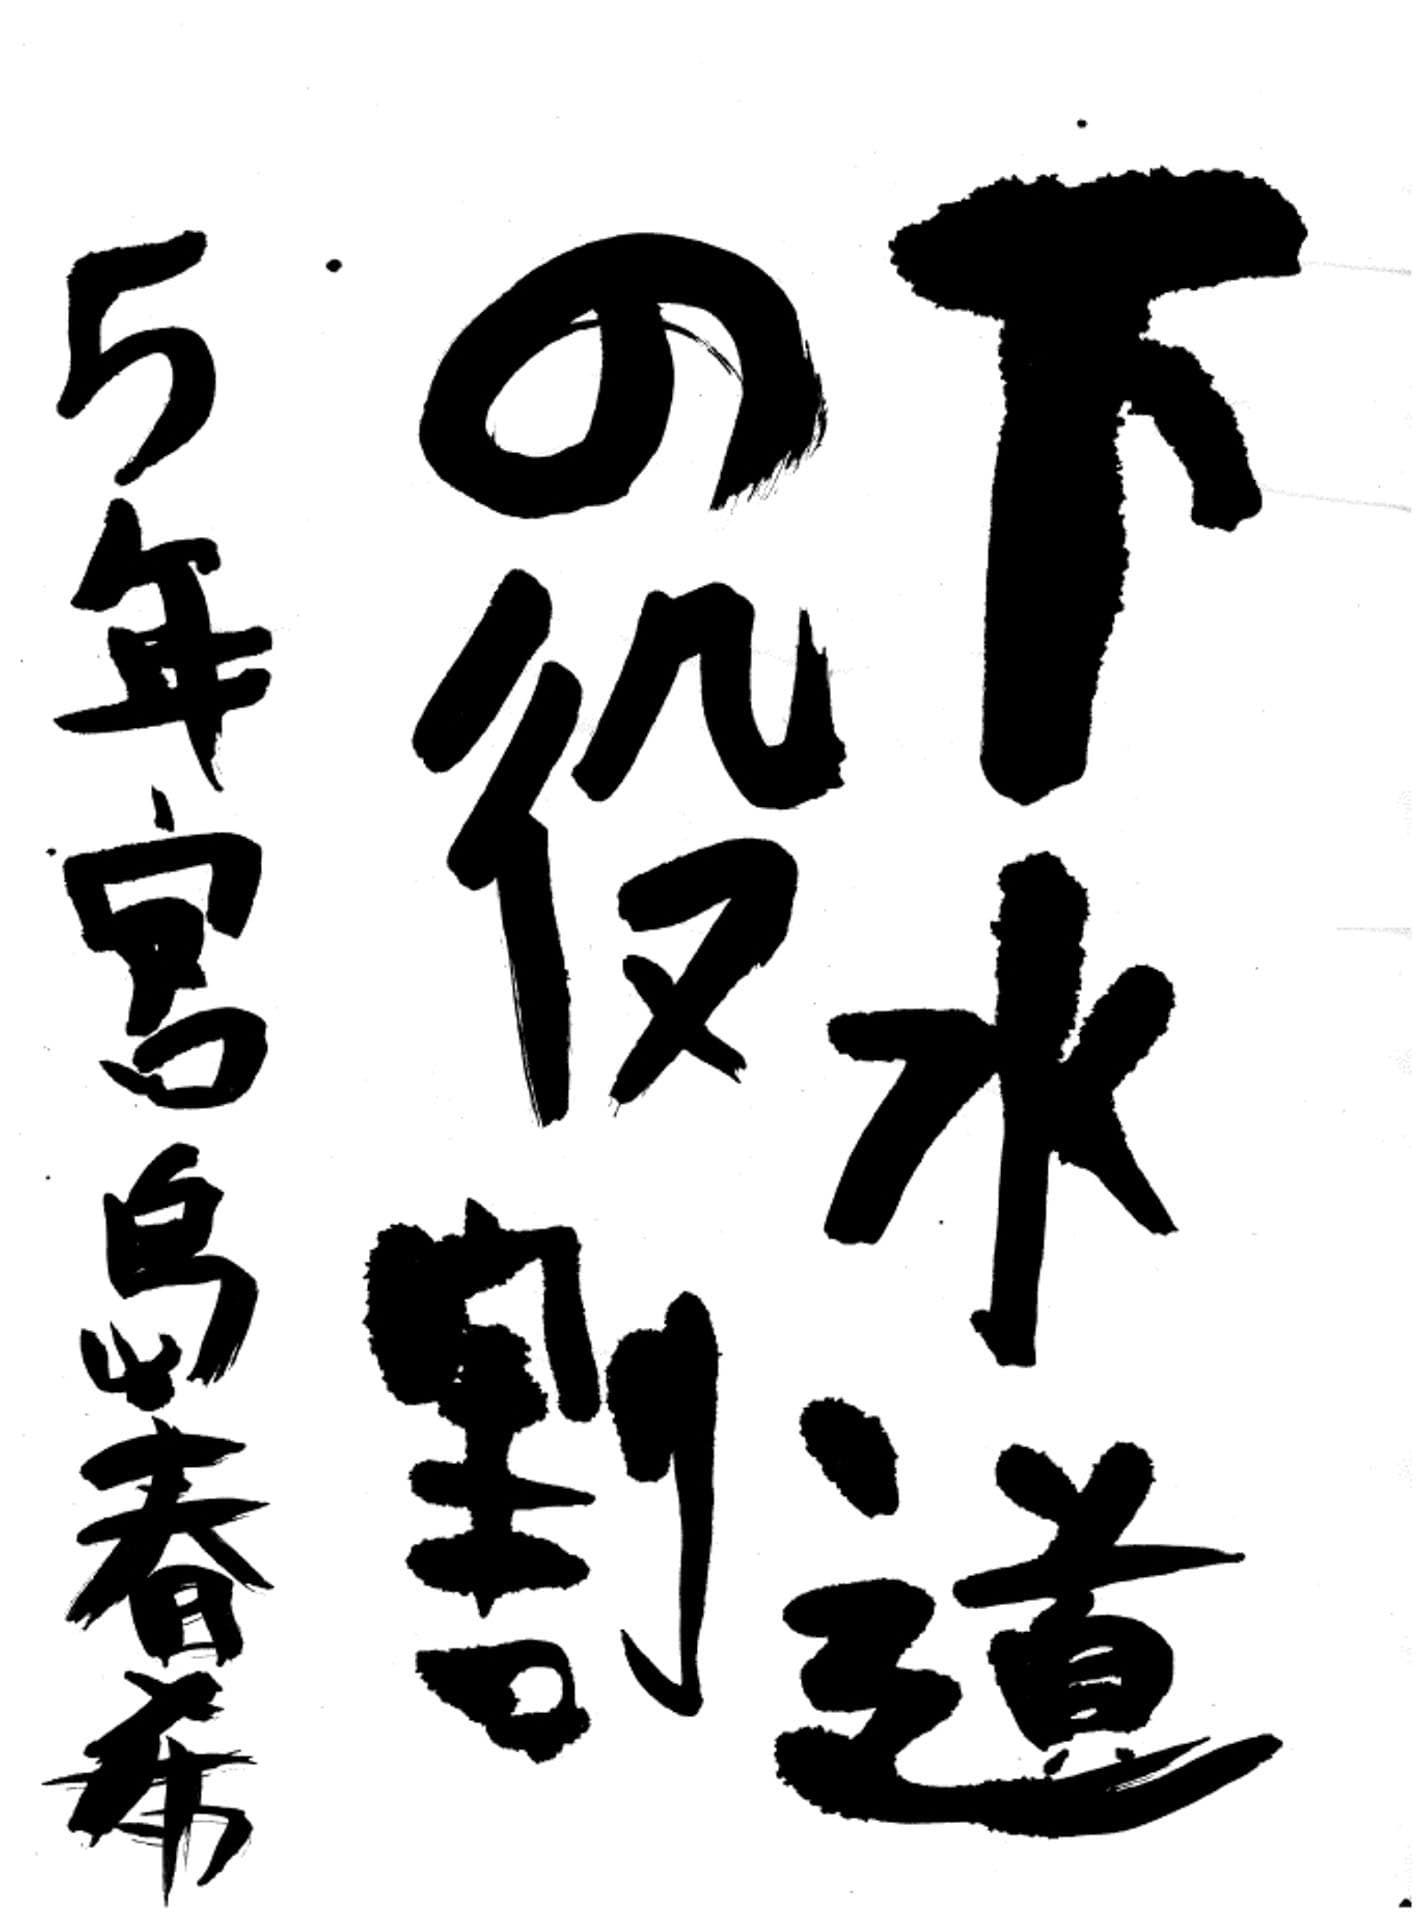 下水道
の役割
5年宮島春希